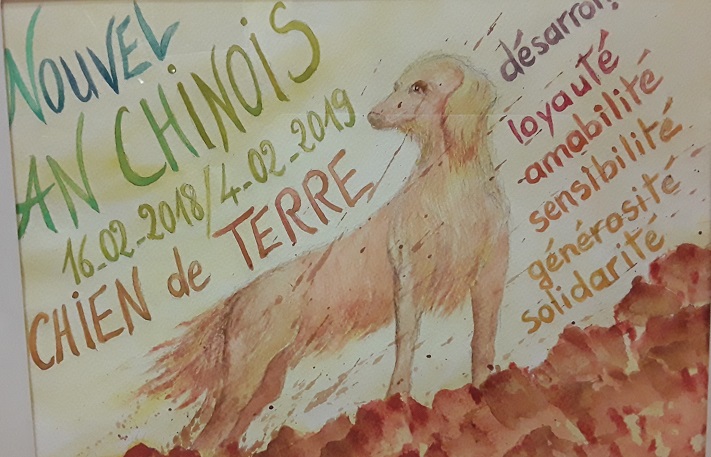 NOUVEL
AN CHINOIS
16_02_2018/4_02_2019
CHIEN de TERRE
loyauté
amabilité
sensibilité
générosité
solidarité